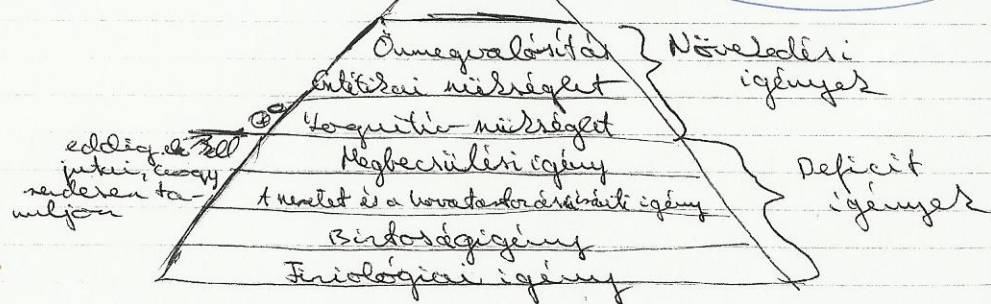 Önmegvalósítás
Esztétikai szükséglet
Kognitív szükséglet
Megbecsülési igény
A szeretet és a hovatartozás iránti igény
Biztonságigény
Fiziológiai igény
Növekedési
igények
Deficit
igények
eddig el kell
jutni, hogy
rendesen ta-
nuljon